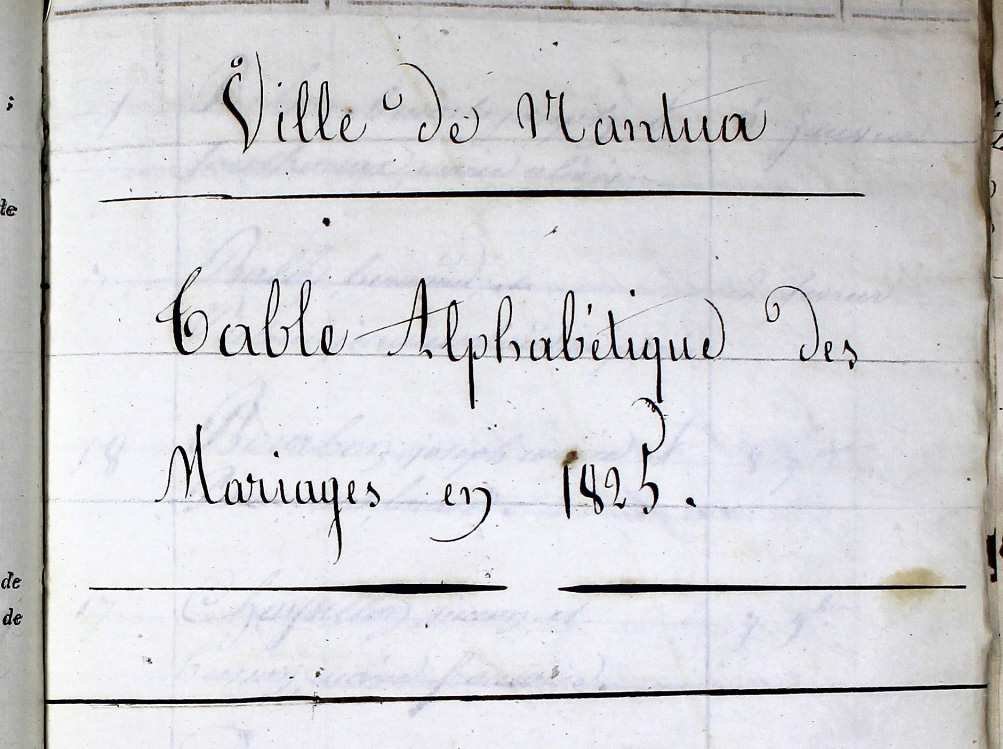 Ville de Nantua
Table Alphabétique des
Mariages en 1825.
te
de
de